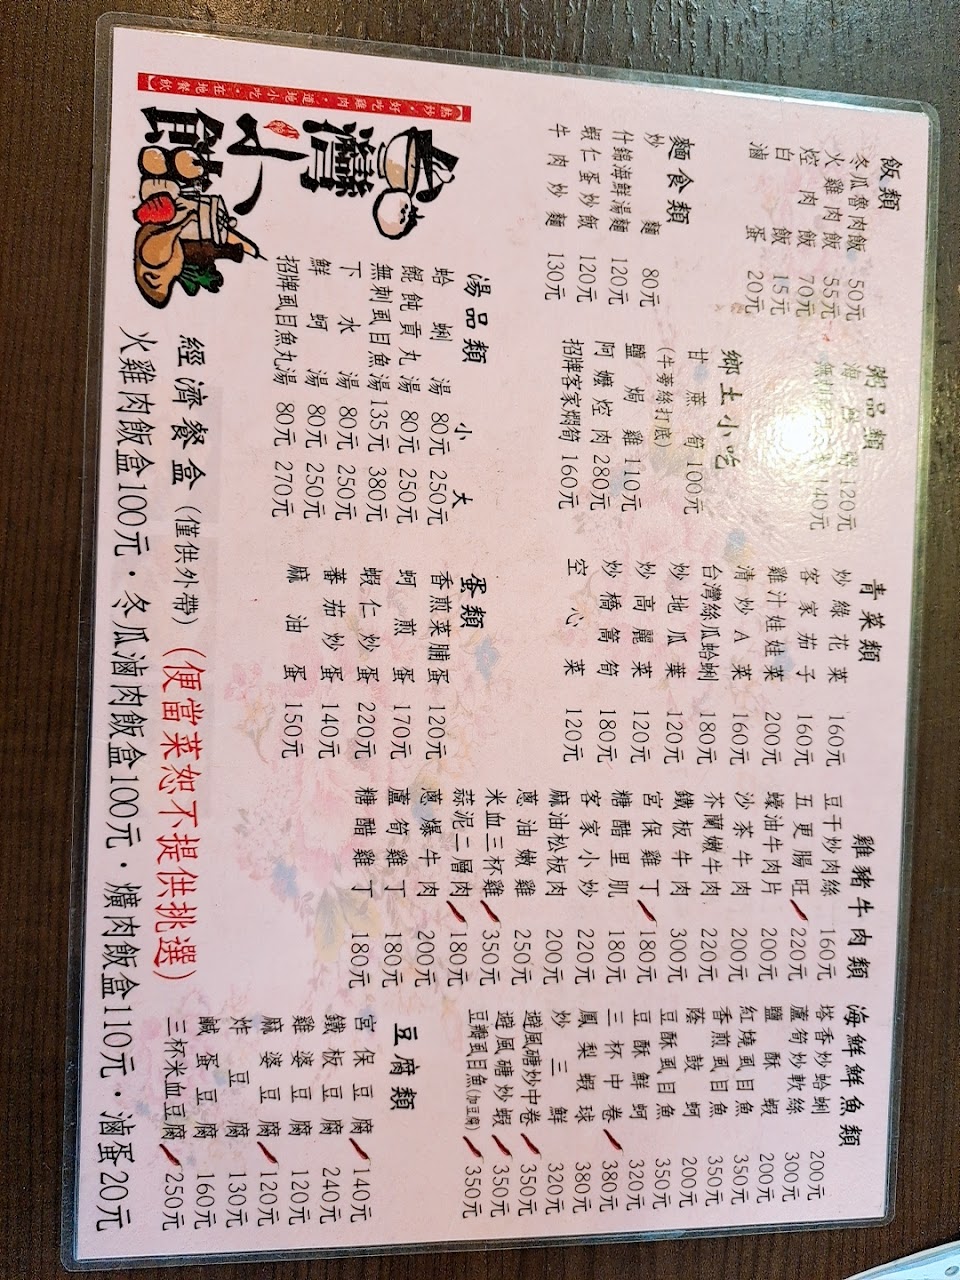 飯類
冬瓜魯肉飯 50元
火雞肉飯 55元
焢肉飯 70元
白飯 15元
滷蛋 20元
麵食類
炒麵 80元
什錦海鮮湯麵 120元
蝦仁蛋炒飯 120元
牛肉炒麵 130元
粥品類
海鮮粥 120元
140元
鄉土小吃
甘蔗筍 100元
(牛蒡絲打底)
鹽焗雞 110元
阿嬤焢肉 280元
招牌客家燜筍 160元
青菜類
炒綠花菜 160元
客家茄子 160元
雞汁娃娃菜 200元
清炒A菜 160元
台灣絲瓜蛤蜊 180元
炒地瓜葉 120元
炒高麗菜 120元
炒橋筒筍 180元
空心菜 120元
雞豬牛肉類
豆干炒肉絲 160元
五更腸旺 220元
蠔油牛肉片 200元
沙茶牛肉 200元
芥蘭嫩牛肉 220元
鐵板牛肉 300元
宮保雞丁 180元
糖醋里肌 180元
客家小炒 220元
麻油松板肉 200元
蔥油嫩雞 250元
米血三杯雞 350元
蒜泥二層肉 180元
蔥爆牛肉 200元
蘆筍雞丁 180元
糖醋雞丁 180元
海鮮鮮魚類
塔香炒蛤蜊 200元
蘆筍炒軟絲 300元
鹽酥蝦 200元
紅燒虱目魚 350元
香煎虱目魚 350元
蔭鼓蚵 200元
豆酥虱目魚 350元
豆酥鮮蚵 320元
三杯中卷 380元
鳳梨蝦球 380元
炒三鮮 320元
避風磄炒中卷 350元
避風磄炒蝦 350元
豆瓣虱目魚(加豆腐) 350元
湯品類
小 大
蛤蜊湯 80元 250元
餛飩貢丸湯 80元 250元
無刺虱目魚湯 135元 380元
下水湯 80元 250元
鮮蚵湯 80元 250元
招牌虱目魚丸湯 80元 270元
蛋類
香煎菜脯蛋 120元
蚵煎蛋 170元
蝦仁炒蛋 220元
蕃茄炒蛋 140元
麻油蛋 150元
豆腐類
宮保豆腐 140元
鐵板豆腐 240元
雞婆豆腐 120元
麻婆豆腐 120元
炸豆腐 130元
鹹蛋豆腐 160元
三杯米血豆腐 250元
【熱炒・好吃雞肉・道地小吃・在地餐飲】
灣
小館
經濟餐盒(僅供外帶)(便當菜恕不提供挑選)
火雞肉飯盒100元・冬瓜滷肉飯盒100元・爌肉飯盒110元・滷蛋20元